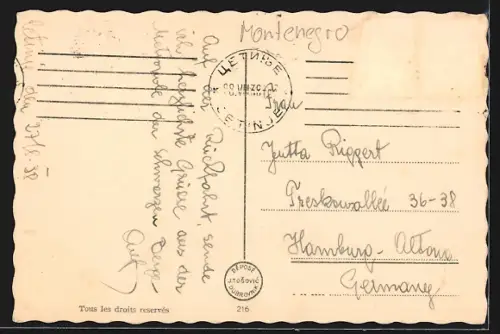 Montenegro
Cetinje den 27/8. 38
Auf der Rückfahrt, sende
ich herzlichste Grüsse aus der
Metropole der schwarzen Berge
ЦЕТИЊЕ
CETINJE
Frau
Jutta Riggert
36-38
Hamburg-Altona
Germany
DÉPOSÉ
J. Tošović
DUBROVNIK
Tous les droits reservés
216